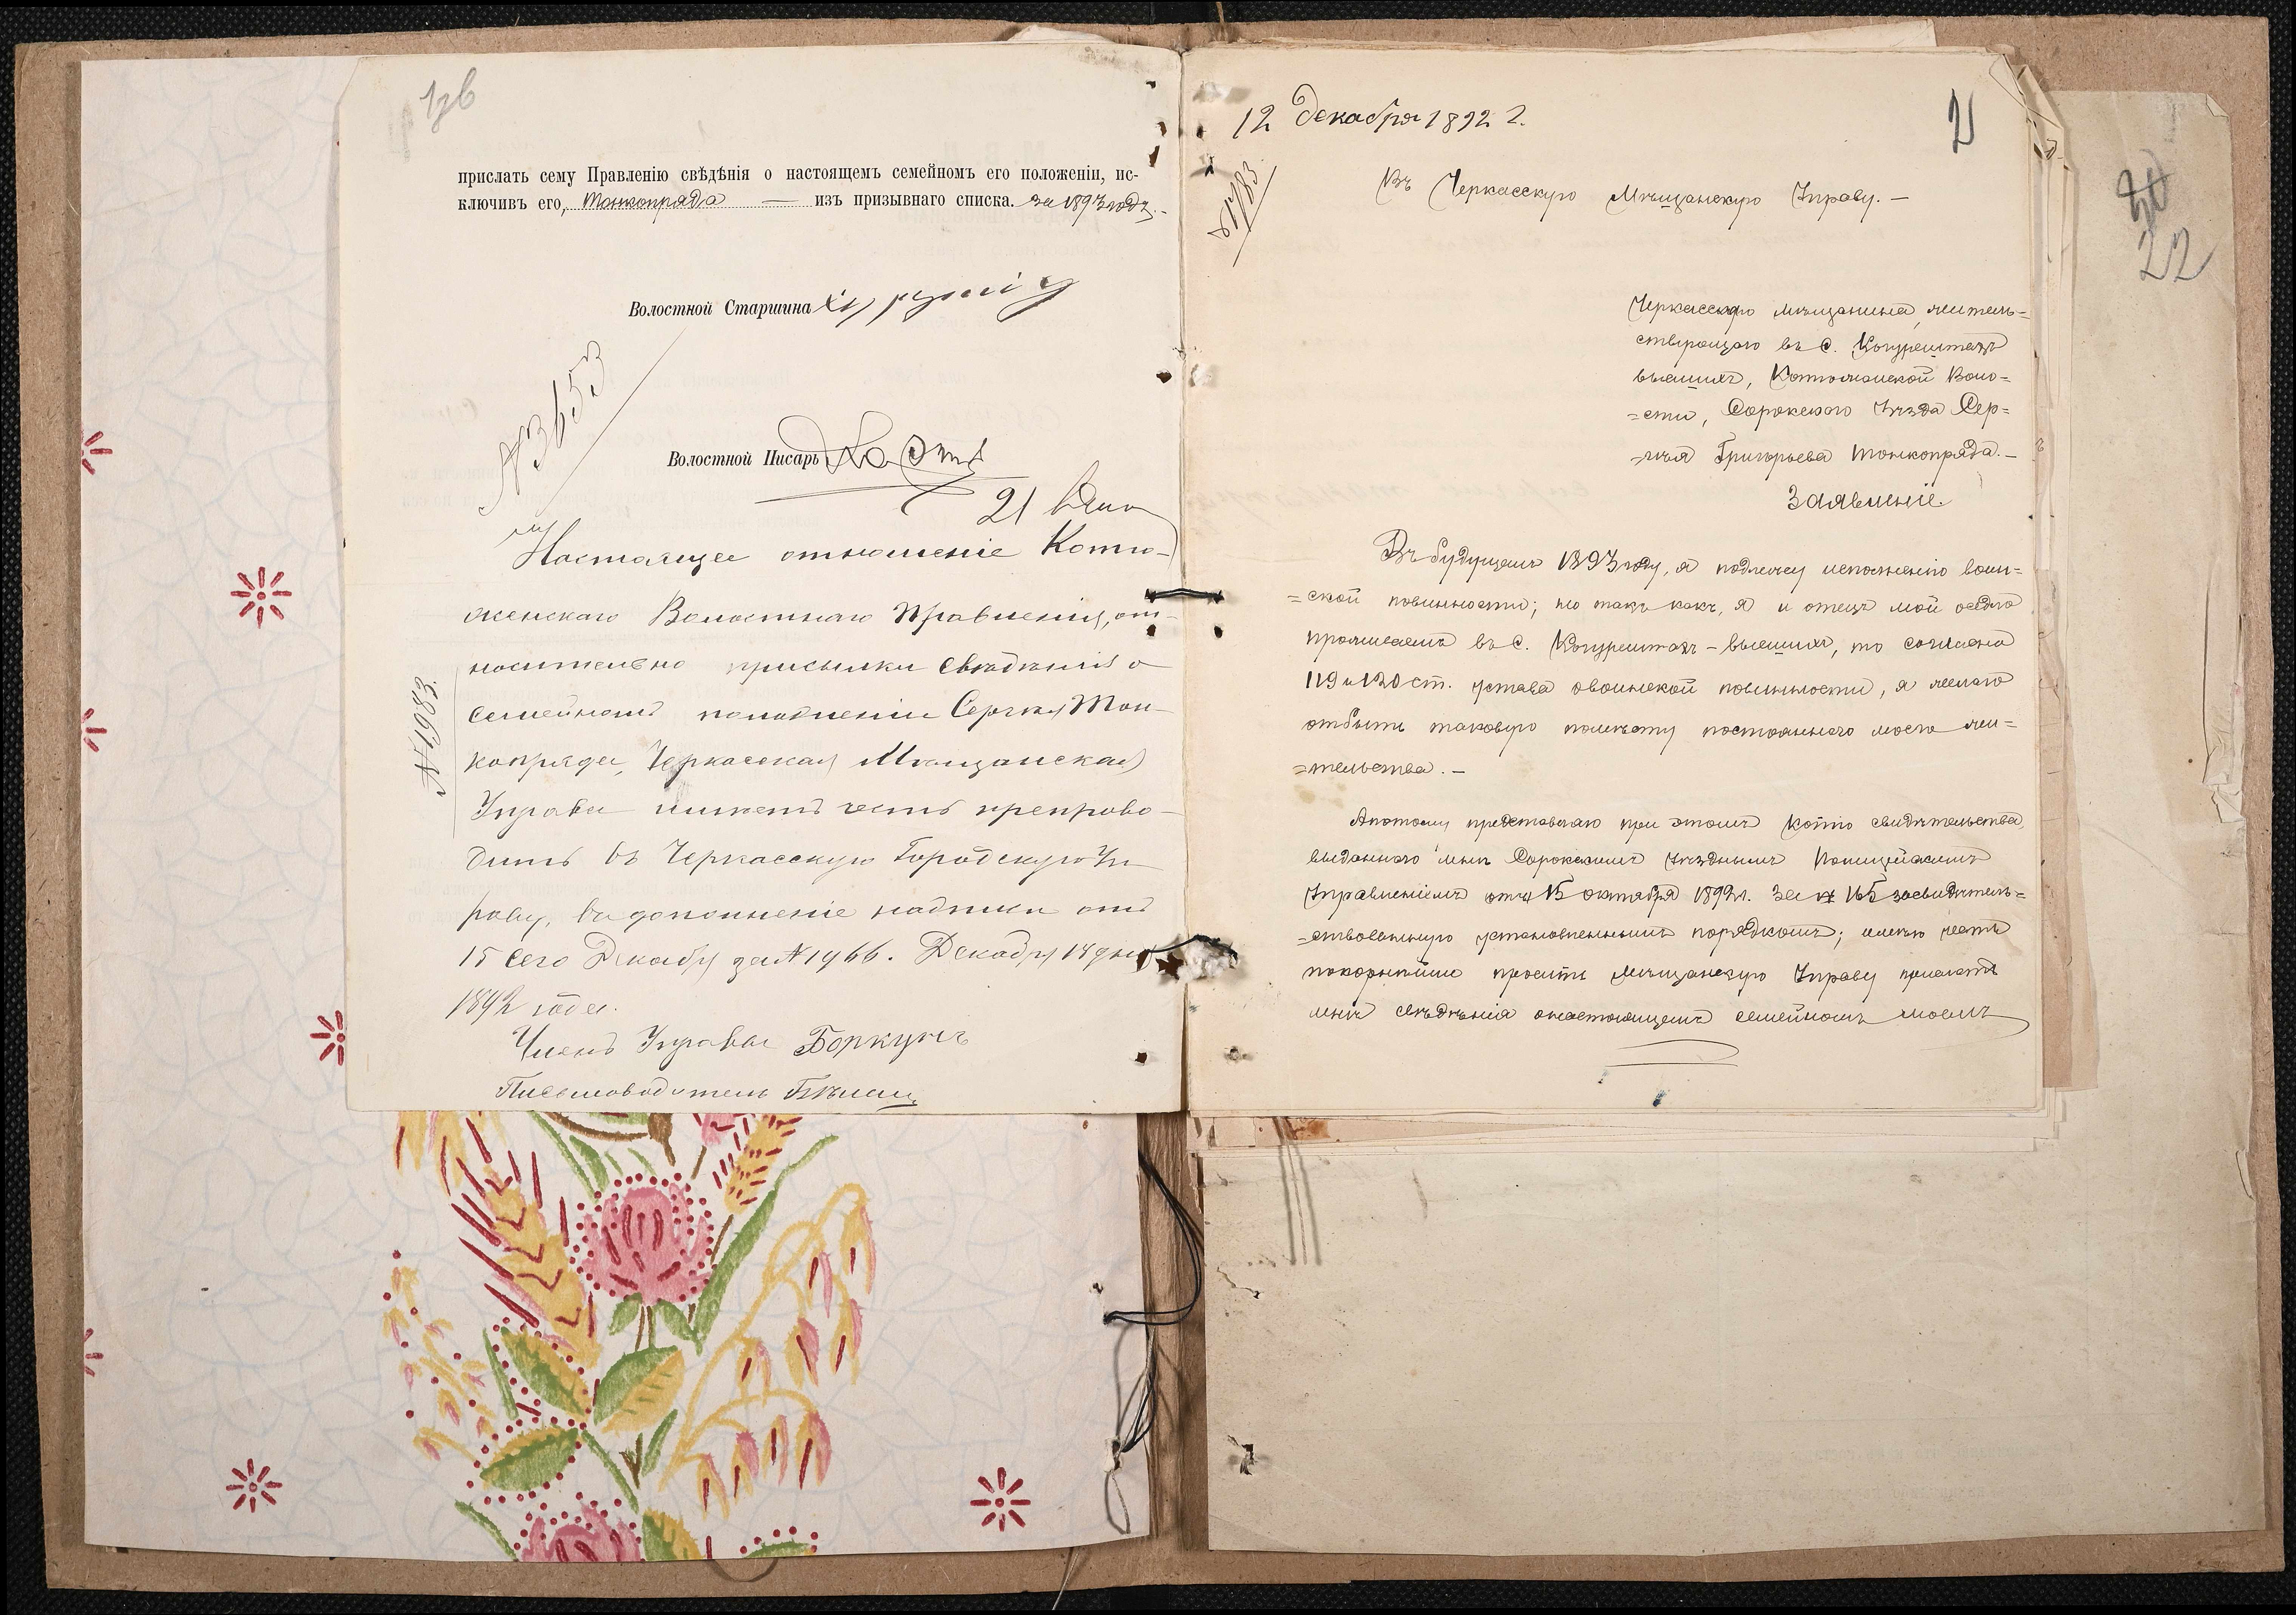 1зв
прислать сему Правленію свѣдѣнія о настоящемъ семейномъ его положеніи, ис-
ключивъ его, Тонкопряда — изъ призывнаго списка. за 1893 годъ.-
Волостной Старшина
№ 3653
Волостной Писарь
21
Настоящее отношеніе Котю-
женскаго Волостнаго Правленія, от-
носительно присылки свѣдѣнія о
семейномъ положеніи Сергѣя Тон-
копряда, Черкасская Мѣщанская
Управа имѣетъ честь препрово-
дить въ Черкасскую Городскую Уп
раву, въ дополненіе надписи отъ
15 сего Декабря за № 1966. Декабря 18 дня
1892 года.
Членъ Управы Боркунъ
Письмоводитель
№ 1983.
12 Декабря 1892 г.
2
№ 1983
Въ Черкасскую Мѣщанскую Управу. —
Черкасскаго мѣщанина, житель=
ствующаго въ с. Когурештахъ
высшихъ, Котюжанской Воло=
=сти, Сорокскаго Уѣзда Сер=
=гѣя Григорьева Тонкопряда. —
Заявленіе.
Въ будущемъ 1893 году, я подлежу исполненію воин=
=ской повинности; но такъ какъ, я и отецъ мой осѣдло
проживаемъ въ с. Когурештахъ-высшихъ, то согласно
119 и 120 ст. устава о воинской повинности, я желаю
отбыть таковую по мѣсту постояннаго моего жи=
=тельства. —
А потому представляю при этомъ копію свидѣтельства,
выданнаго мнѣ Сорокскимъ Уѣзднымъ Полицейскимъ
Управленіемъ отъ 15 октября 1892 г. за № 165 засвидѣтель=
=ствованную установленнымъ порядкомъ; имѣю честь
покорнѣйше просить Мѣщанскую Управу прислать
мнѣ свѣдѣнія о настоящемъ семейномъ моемъ
20
22